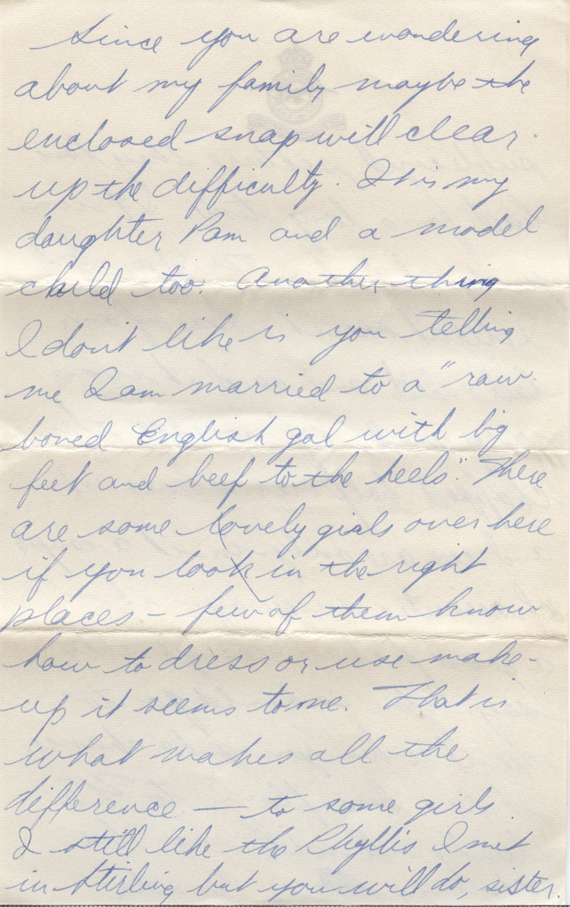 Since you are wondering
about my family maybe the
enclosed snap will clear
up the difficulty. It is my
daughter Pam and a model
child too. Another thing
I don't like is you telling
me I am married to a "raw
boned English gal with big
feet and beef to the heels". There
are some lovely girls over here
if you look in the right
places – few of them know
how to dress or use make-
up it seems to me. That is
what makes all the
difference — to some girls.
I still like the Phyllis I met
in Stirling but you will do, sister.